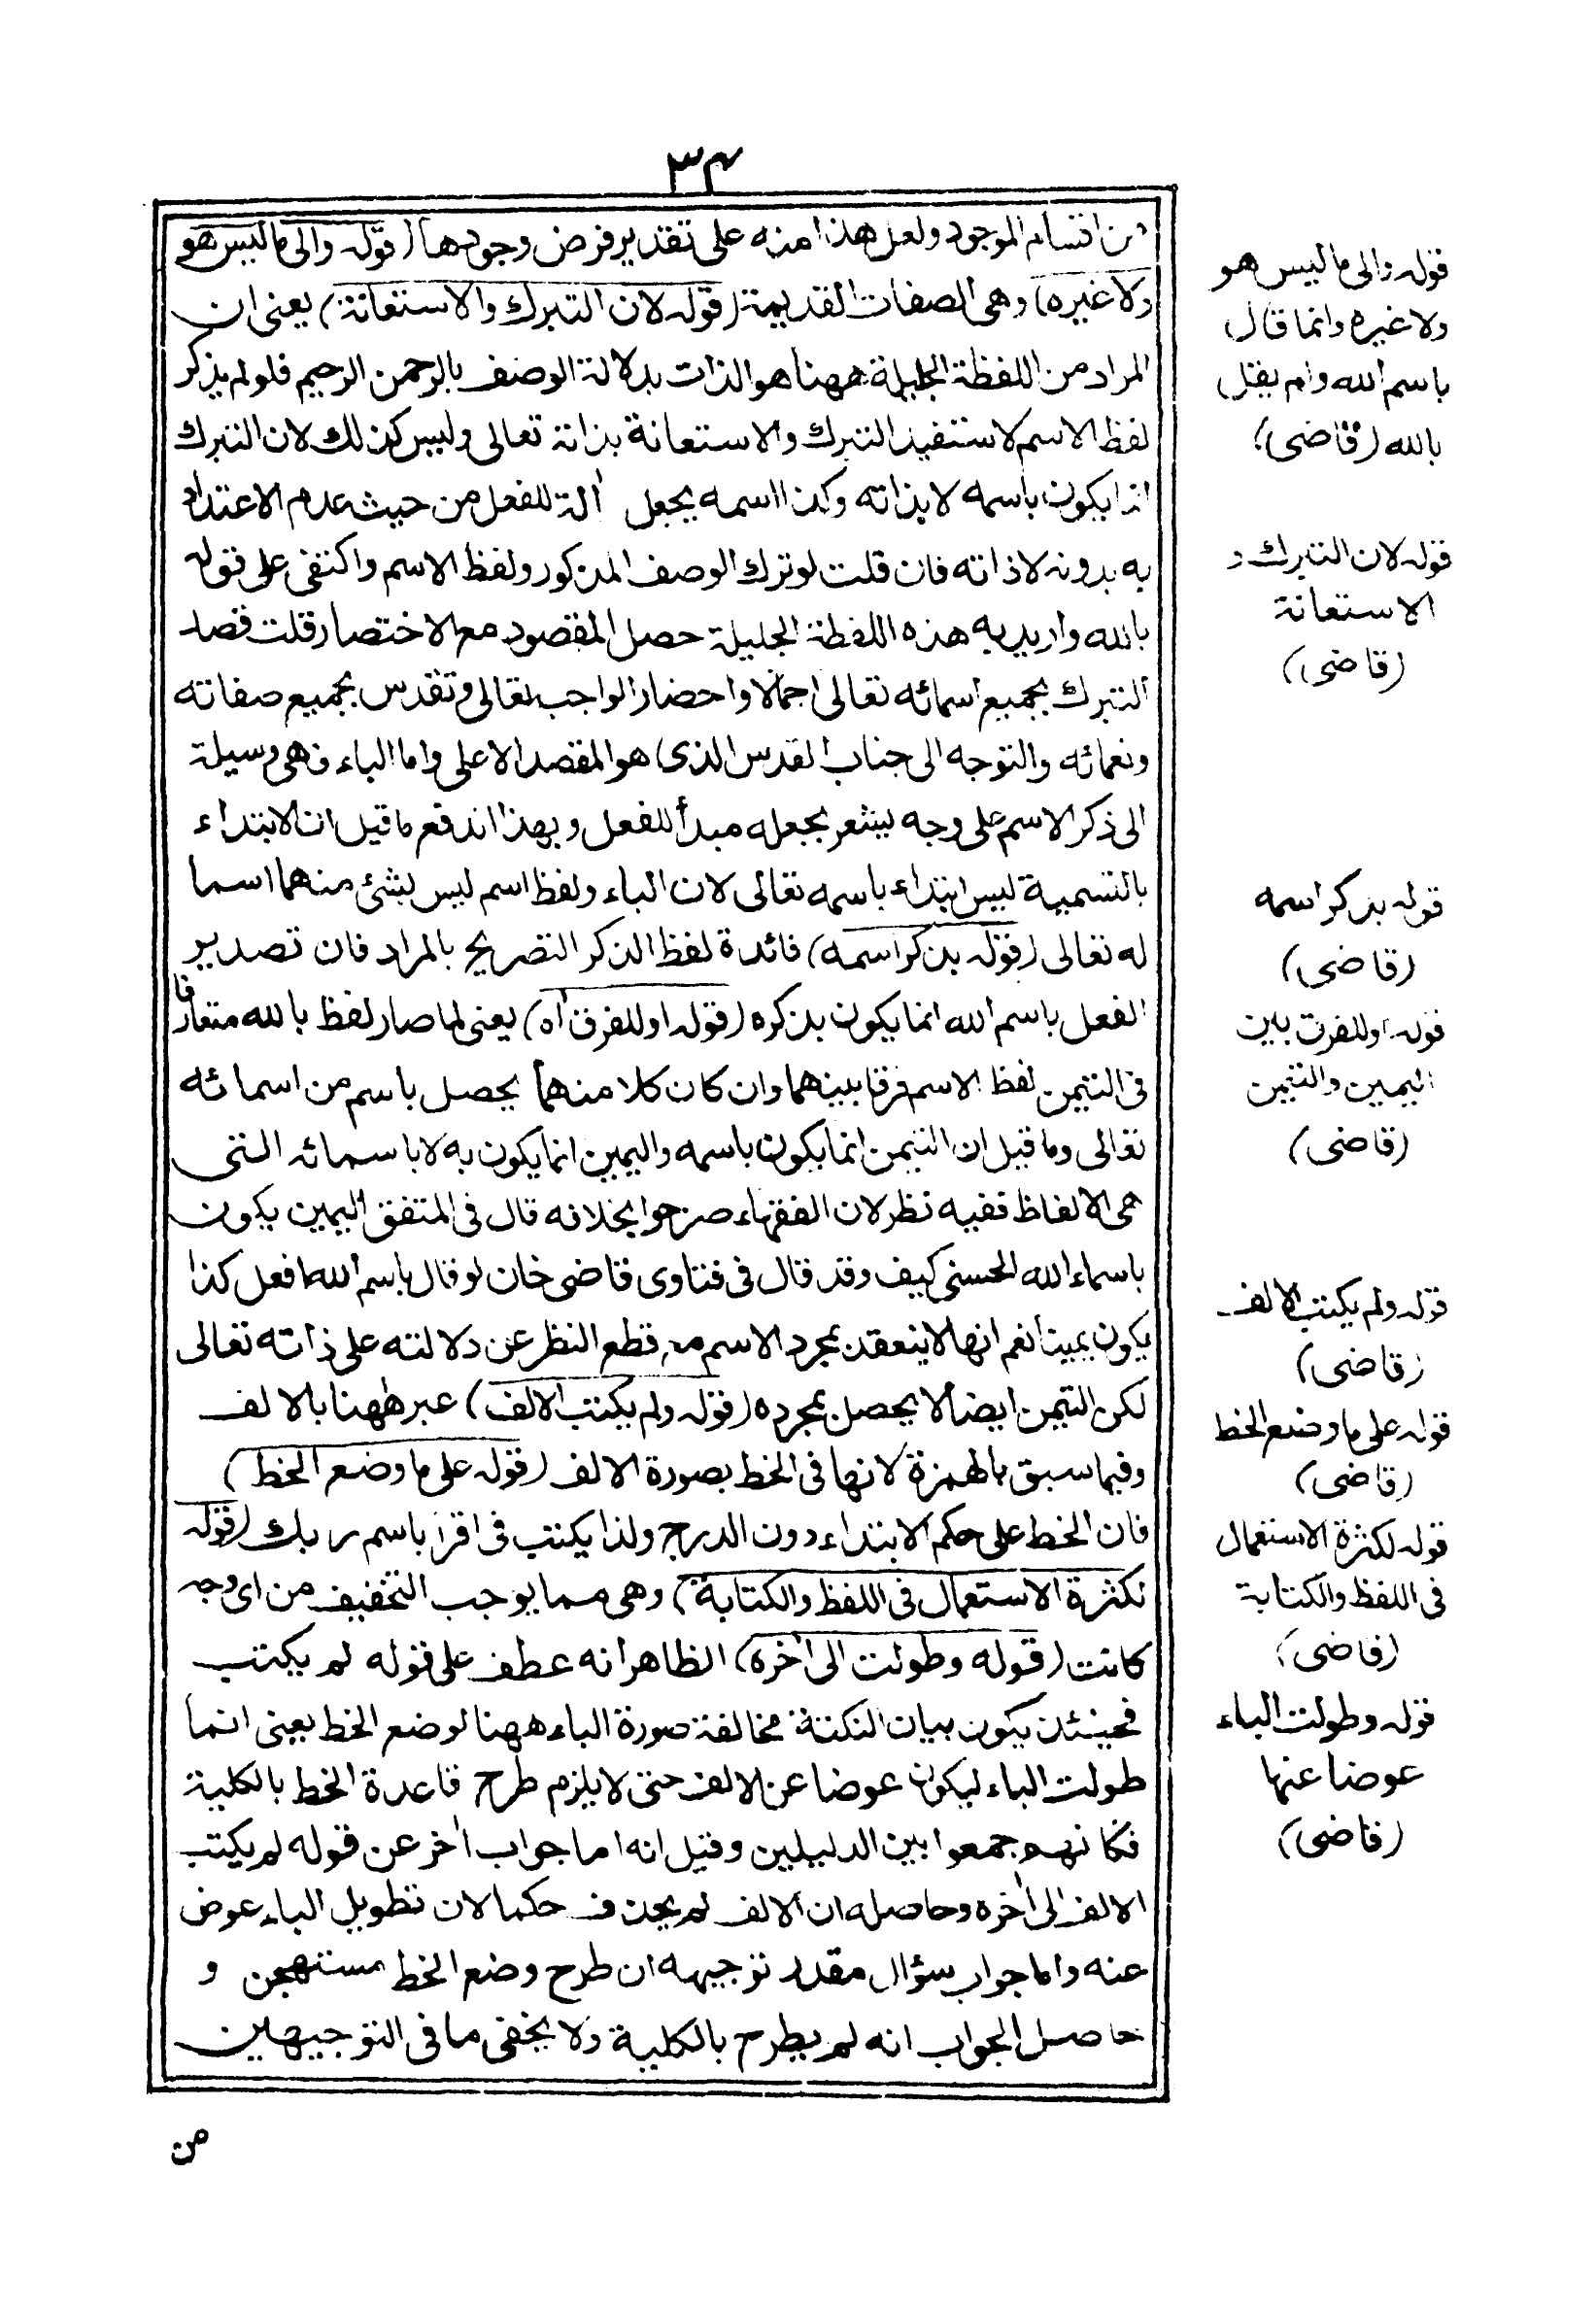 ٣٤
من اقسام الموجود ولعل هذا منه على تقدير فرض وجودها (قوله والى ماليس هو
ولا غيره) وهى الصفات القديمة (قوله لان التبرك والاستعانة) يعنى ان
المراد من اللفظة الجليلة ههنا هو الذات بدلالة الوصف بالرحمن الرحيم فلو لم يذكر
لفظ الاسم لاستفيد التبرك والاستعانة بذاته تعالى وليس كذلك لان التبرك
انما يكون باسمه لا بذاته وكذا اسمه يجعل اٰلة للفعل من حيث عدم الاعتداد
به بدونه لا ذاته فان قلت لو ترك الوصف المذكور ولفظ الاسم واكتفى على قوله
بالله واريد به هذه اللفظة الجليلة حصل المقصود مع الاختصار قلت قصد
التبرك بجميع اسمائه تعالى اجمالا واحضار الواجب تعالى وتقدس بجميع صفاته
ونعمائه والتوجه الى جناب القدس الذى هو المقصد الاعلى واما الباء فهى وسيلة
الى ذكر الاسم على وجه يشعر بجعله مبدأ للفعل وبهذا اندفع ما قيل ان الابتداء
بالتسمية ليس ابتداء باسمه تعالى لان الباء ولفظ اسم ليس بشئ منهما اسما
له تعالى (قوله بذكر اسمه) فائدة لفظ الذكر التصريح بالمراد فان تصدير
الفعل باسم الله انما يكون بذكره (قوله او للفرق اه) يعنى لما صار لفظ بالله متعارفا
فى التيمن لفظ الاسم فرقا بينهما وان كان كلا منهما يحصل باسم من اسمائه
تعالى وما قيل ان التيمن انما يكون باسمه واليمين انما يكون به لا باسمائه التى
هى الالفاظ ففيه نظر لان الفقهاء صرحوا بخلافه قال فى المتفق اليمين يكون
باسماء الله الحسنى كيف وقد قال فى فتاوى قاضى خان لو قال باسم الله افعل كذا
يكون يمينا نعم انها لا ينعقد بمجرد الاسم مع قطع النظر عن دلالته على ذاته تعالى
لكن التيمن ايضا لا يحصل بمجرده (قوله ولم يكتب الالف) عبر ههنا بالالف
وفيما سبق بالهمزة لانها فى الخط بصورة الالف (قوله على ما وضع الخط)
فان الخط على حكم الابتداء دون الدرج ولذا يكتب فى اقرأ باسم ربك (قوله
لكثرة الاستعمال فى اللفظ والكتابة) وهى مما يوجب التخفيف من اى وجه
كانت (قوله وطولت الى اٰخره) الظاهر انه عطف على قوله لم يكتب
فحينئذ يكون بيان النكتة مخالفة صورة الباء ههنا لوضع الخط يعنى انما
طولت الباء ليكون عوضا عن الالف حتى لا يلزم طرح قاعدة الخط بالكلية
فكانهم جمعوا بين الدليلين وقيل انه اما جواب اٰخر عن قوله لم يكتب
الالف الى اٰخره وحاصله ان الالف لم يحذف حكما لان تطويل الباء عوض
عنه واما جواب سؤال مقدر توجيهه ان طرح وضع الخط مستهجن و
حاصل الجواب انه لم يطرح بالكلية ولا يخفى ما فى التوجيهين
من
قوله والى ما ليس هو
ولا غيره وانما قال
باسم الله ولم يقل
بالله (قاضى)
قوله لان التبرك و
الاستعانة
(قاضى)
قوله بذكر اسمه
(قاضى)
قوله او للفرق بين
اليمين والتيمن
(قاضى)
قوله ولم يكتب الالف
(قاضى)
قوله على ما وضع الخط
(قاضى)
قوله لكثرة الاستعمال
فى اللفظ والكتابة
(قاضى)
قوله وطولت الباء
عوضا عنها
(قاضى)